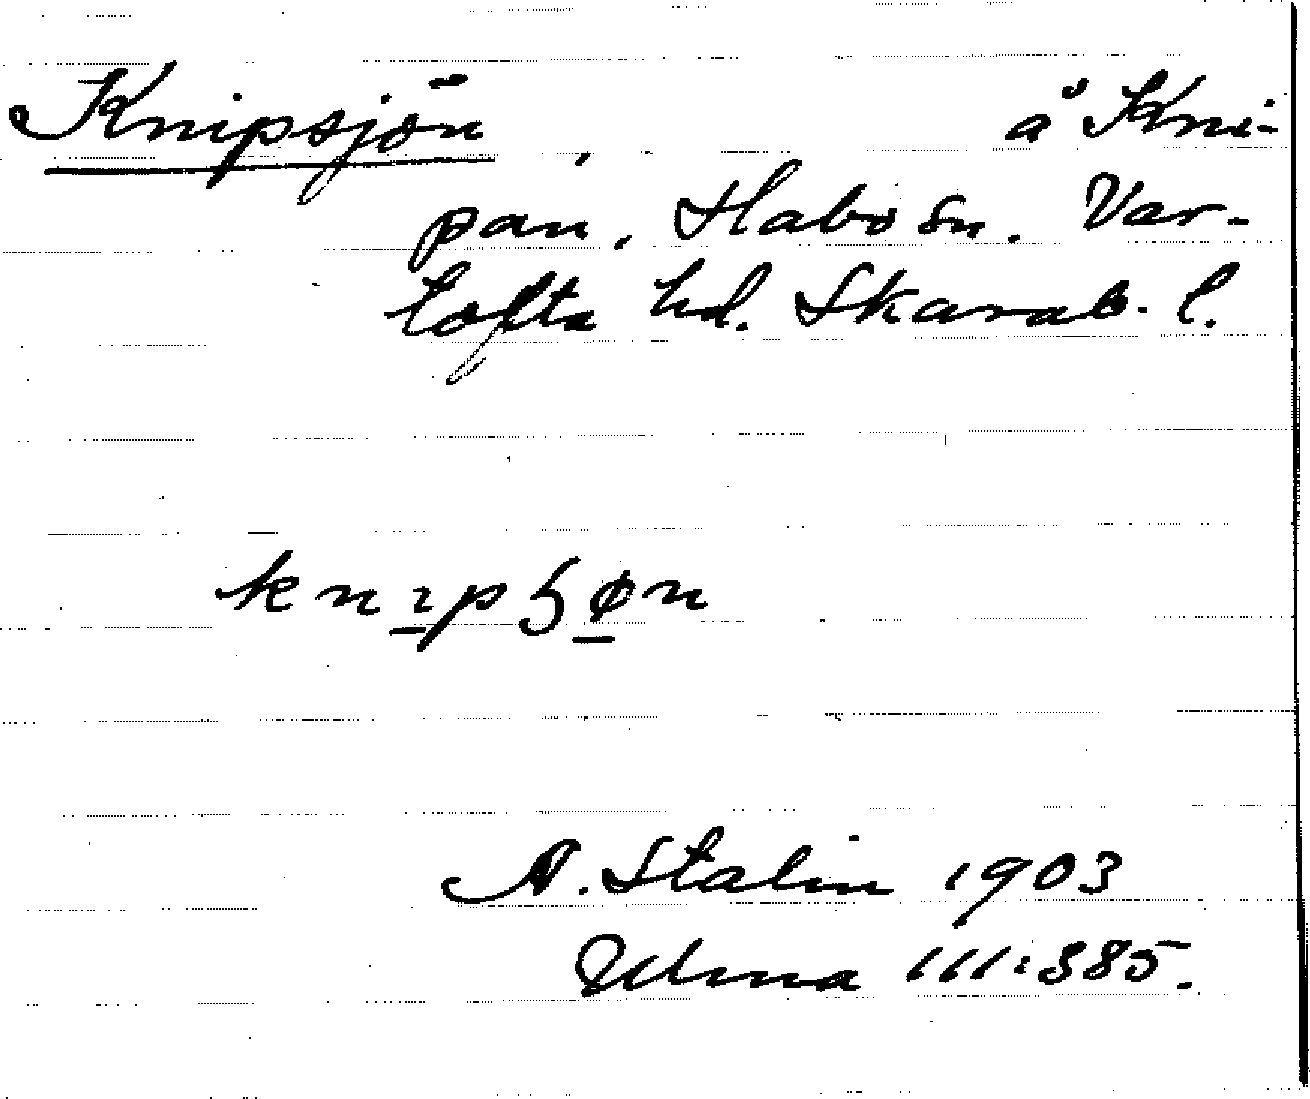 Knipsjön, å Kni-
pan, Habo sn. Var-
tofta hd. Skarab. l.
knıpꞔøn
A. Stalin 1903
Ulma 111:385.